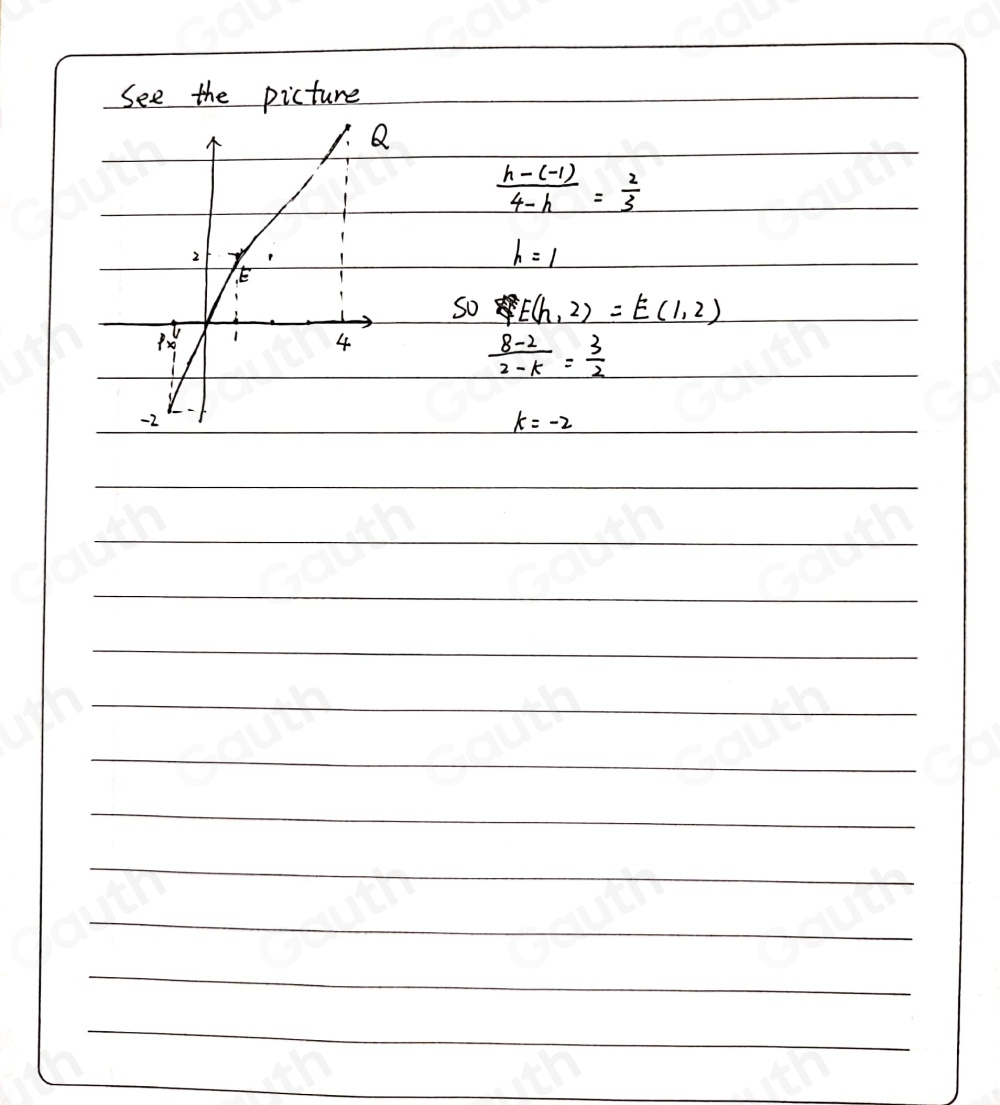 See the picture
Q
h-(-1)/4-h = 2/3
2
E
h=1
SO E(h,2) = E(1,2)
1
4
8-2/2-k = 3/2
-2
k=-2
Gauth